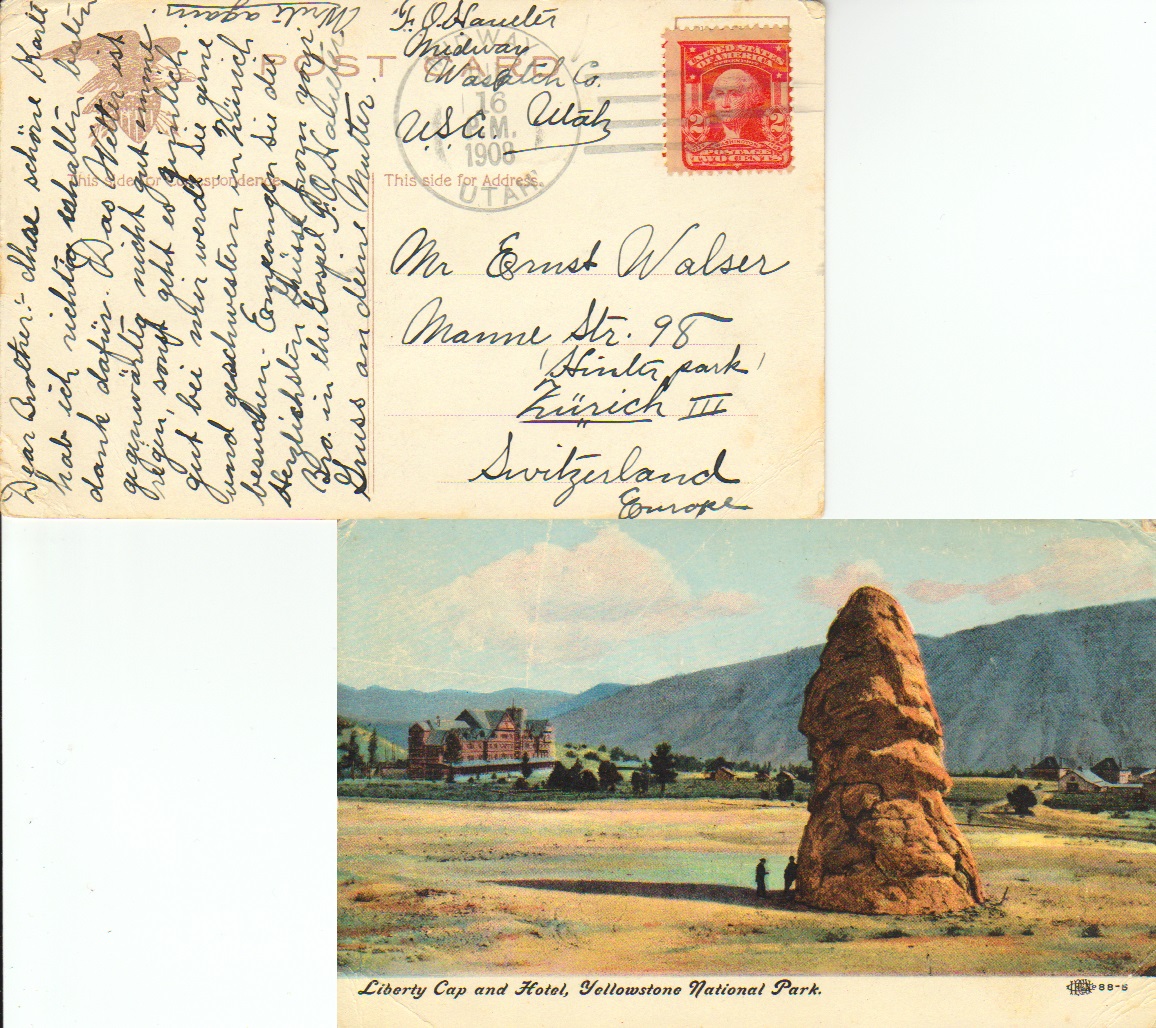 Write again.
Dear Brother:- Ihre schöne Karte
hab ich richtig erhalten besten
dank dafür. Das Wetter ist
gegenwärtig nicht gut immer
regen, sonst geht es ziemlich
gut bei mir werde Sie gerne
und geschwestern in Zürich
besuchen. Empfangen Sie die
Herzlichsten Grüsse von yor
Bro. in the Gospel F. O. Haueter
Gruss an deine Mutter.
F. O. Haueter
Midway
Wasatch Co.
U.S.A. Utah
POST CARD
MIDWAY
16
P.M.
1908
UTAH
UNITED STATES
OF AMERICA
2 2
POSTAGE
TWO CENTS
This side for Correspondence.
This side for Address.
Mr Ernst Walser
Manne Str. 98
(Hinter park)
Zürich III
Switzerland
Europe
Liberty Cap and Hotel, Yellowstone National Park.
88-5